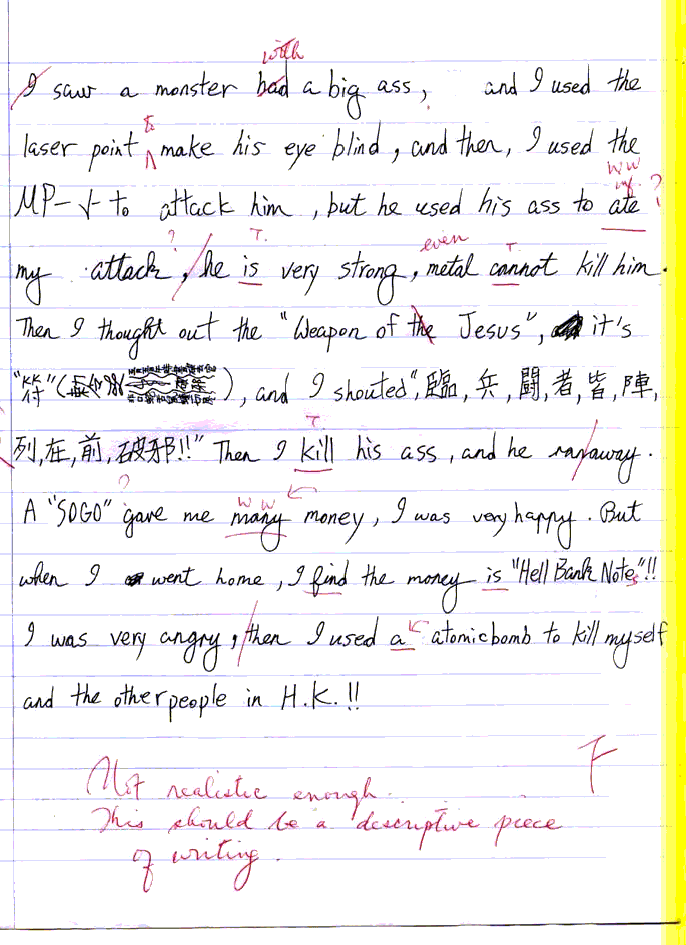 with
I saw a monster had a big ass, and I used the
to
laser point make his eye blind, and then, I used the
WW
inf. ?
MP-5 to attack him, but he used his ass to ate
? T. even T.
my attack, he is very strong, metal cannot kill him.
Then I thought out the "Weapon of the Jesus", it's
"KK付" ( ), and I shouted", 臨, 兵, 鬪, 者, 皆, 陣,
T.
列, 在, 前, 破邪!!" Then I kill his ass, and he ran away.
? WW
A "SOGO" gave me many money, I was very happy. But
when I went home, I find the money is "Hell Bank Notes"!!
I was very angry, then I used a atomic bomb to kill myself
and the other people in H.K. !!
F
Not realistic enough.
This should be a descriptive piece
of writing.